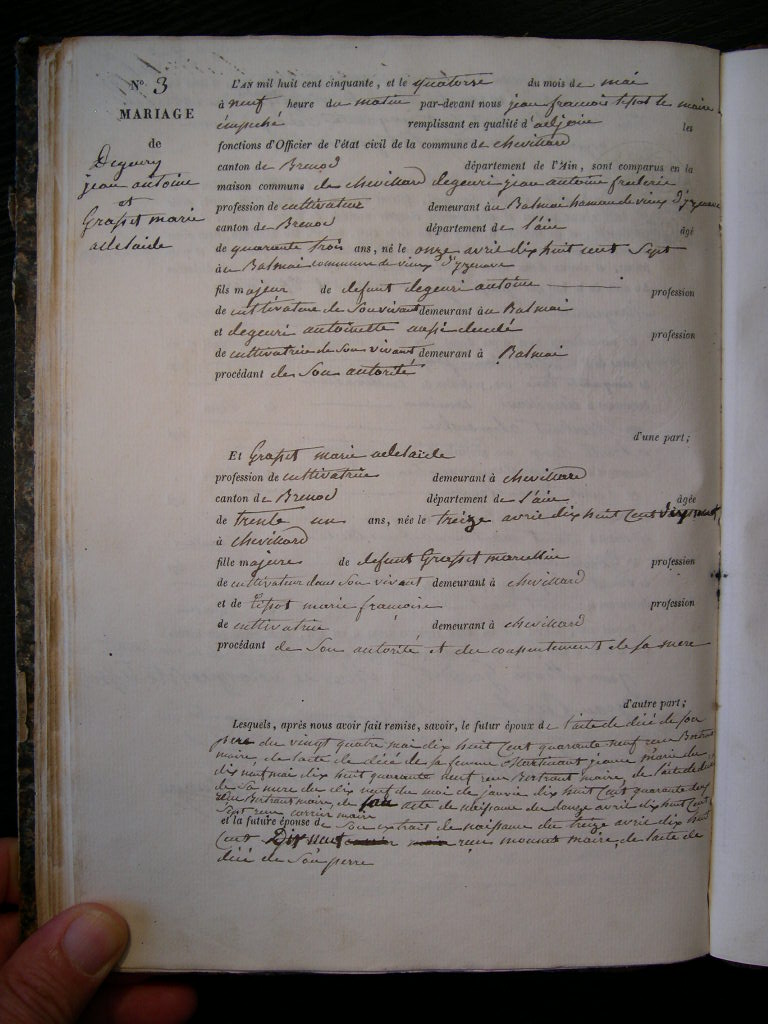 N.º 3
MARIAGE
de
Degeury
jean antoine
et
Grasset marie
adelaide
L'AN mil huit cent cinquante, et le quatorze du mois de mai
à neuf heure du matin par-devant nous jean francois tissot le maire
empeché remplissant en qualité d'adjoin les
fonctions d'Officier de l'état civil de la commune de chevillard
canton de Brenod département de l'Ain, sont comparus en la
maison commune de chevillard degeuri jean antoine
profession de cultivateur demeurant au Balmai hamau de vieux d'yzenave
canton de Brenod département de l'ain âgé
de quarante trois ans, né le onze avril dix huit cent Sept
à au Balmai commune de vieux d'yzenave
fils majeur de defunt degeuri antoine profession
de cultivateur de Son vivant demeurant à au Balmai
et degeuri antoinette aussi décédé profession
de cultivatrice de Son vivant demeurant à Balmai
procédant de Son autorité
d'une part;
Et Grasset marie adelaide
profession de cultivatrice demeurant à chevillard
canton de Brenod département de l'ain âgée
de trente un ans, née le treize avril dix huit cent dix neuf
à chevillard
fille majeure de defunt Grasset marcellin profession
de cultivateur dans Son vivant demeurant à chevillard
et de tissot marie francoise profession
de cultivatrice demeurant à chevillard
procédant de Son autorité et du consentement de sa mere
d'autre part;
Lesquels, après nous avoir fait remise, savoir, le futur époux de l'acte de décé de son
pere du vingt quatre mai dix huit cent quarante neuf reçu Bertrant
maire, de l'acte de décé de sa femme jeanne marie du
dix neuf mai dix huit quarante neuf reçu Bertrant maire, de l'acte de décé
de Sa mere du dix neuf du moi de janvié dix huit cent quarante
reçu Bertrant maire, de son acte de naissance du donze avril dix huit cent
Sept reçu maire
et la future épouse de Son extrait de naissance du treize avril dix huit
cent Dix neuf reçu monnet maire, de l'acte de
décé de Son perre